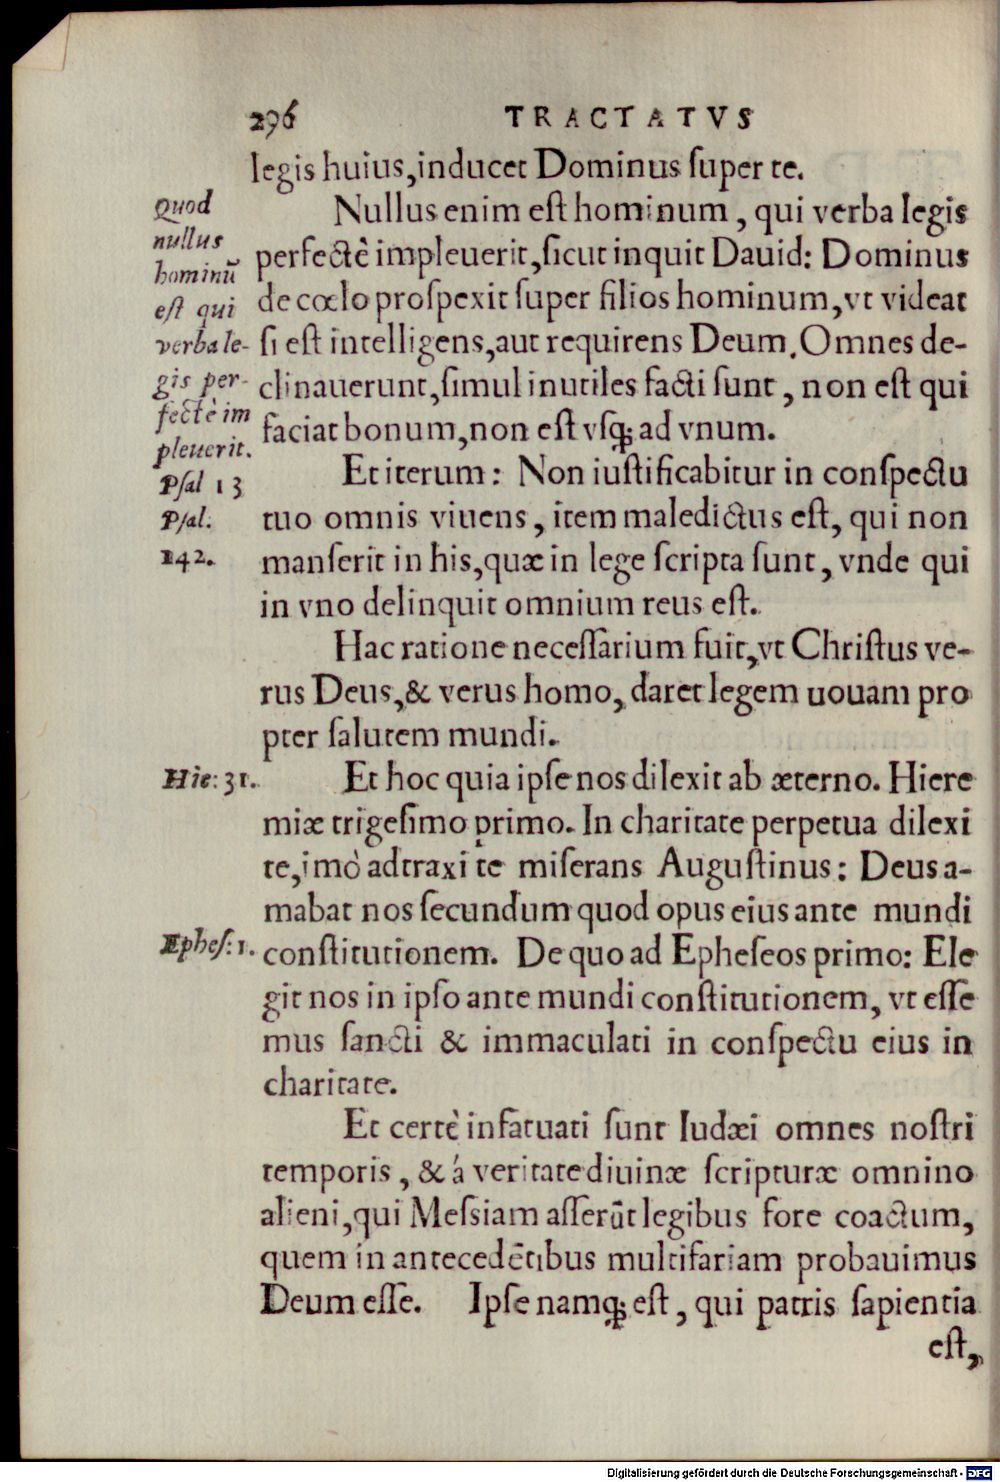 296 TRACTATVS
legis huius,inducet Dominus ſuper te.
Quod
nullus
hominũ
eſt qui
verba le-
gis per-
fectè im
pleuerit.
Pſal 13
Pſal.
142.
Nullus enim eſt hominum, qui verba legis
perfectè impleuerit,ſicut inquit Dauid: Dominus
de cœlo proſpexit ſuper filios hominum,vt videat
ſi eſt intelligens,aut requirens Deum.Omnes de-
clinauerunt,ſimul inutiles facti ſunt, non eſt qui
faciat bonum,non eſt vſq; ad vnum.
Et iterum: Non iuſtificabitur in conſpectu
tuo omnis viuens, item maledictus eſt, qui non
manſerit in his,quæ in lege ſcripta ſunt, vnde qui
in vno delinquit omnium reus eſt.
Hac ratione neceſſarium fuit,vt Chriſtus ve-
rus Deus,& verus homo, daret legem uouam pro
pter ſalutem mundi.
Hie: 31.
Et hoc quia ipſe nos dilexit ab æterno. Hiere
miæ trigeſimo primo. In charitate perpetua dilexi
te,imò adtraxi te miſerans Auguſtinus: Deus a-
mabat nos ſecundum quod opus eius ante mundi
Epheſ: 1.
conſtitutionem. De quo ad Epheſeos primo: Ele
git nos in ipſo ante mundi conſtitutionem, vt eſſe
mus ſancti & immaculati in conſpectu eius in
charitate.
Et certè infatuati ſunt Iudæi omnes noſtri
temporis, & á veritate diuinæ ſcripturæ omnino
alieni,qui Meſsiam aſſerũt legibus fore coactum,
quem in antecedẽtibus multifariam probauimus
Deum eſſe. Ipſe namq; eſt, qui patris ſapientia
eſt,
Digitalisierung gefördert durch die Deutsche Forschungsgemeinschaft - DFG